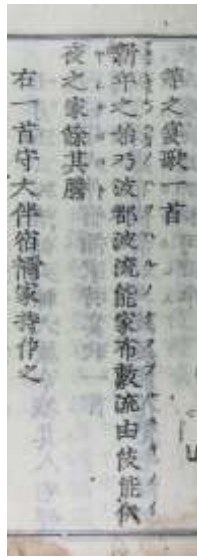 等之宴歌一首
新年之始乃波都波流能家布敷流由伎能伊
夜之家餘其騰
右一首守大伴宿禰家持作之